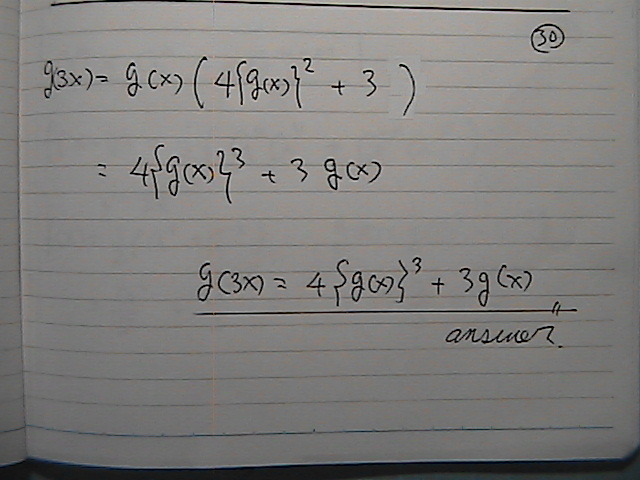 30
g(3x) = g(x) ( 4{g(x)}² + 3 )
= 4{g(x)}³ + 3 g(x)
g(3x) = 4{g(x)}³ + 3g(x)
answer.